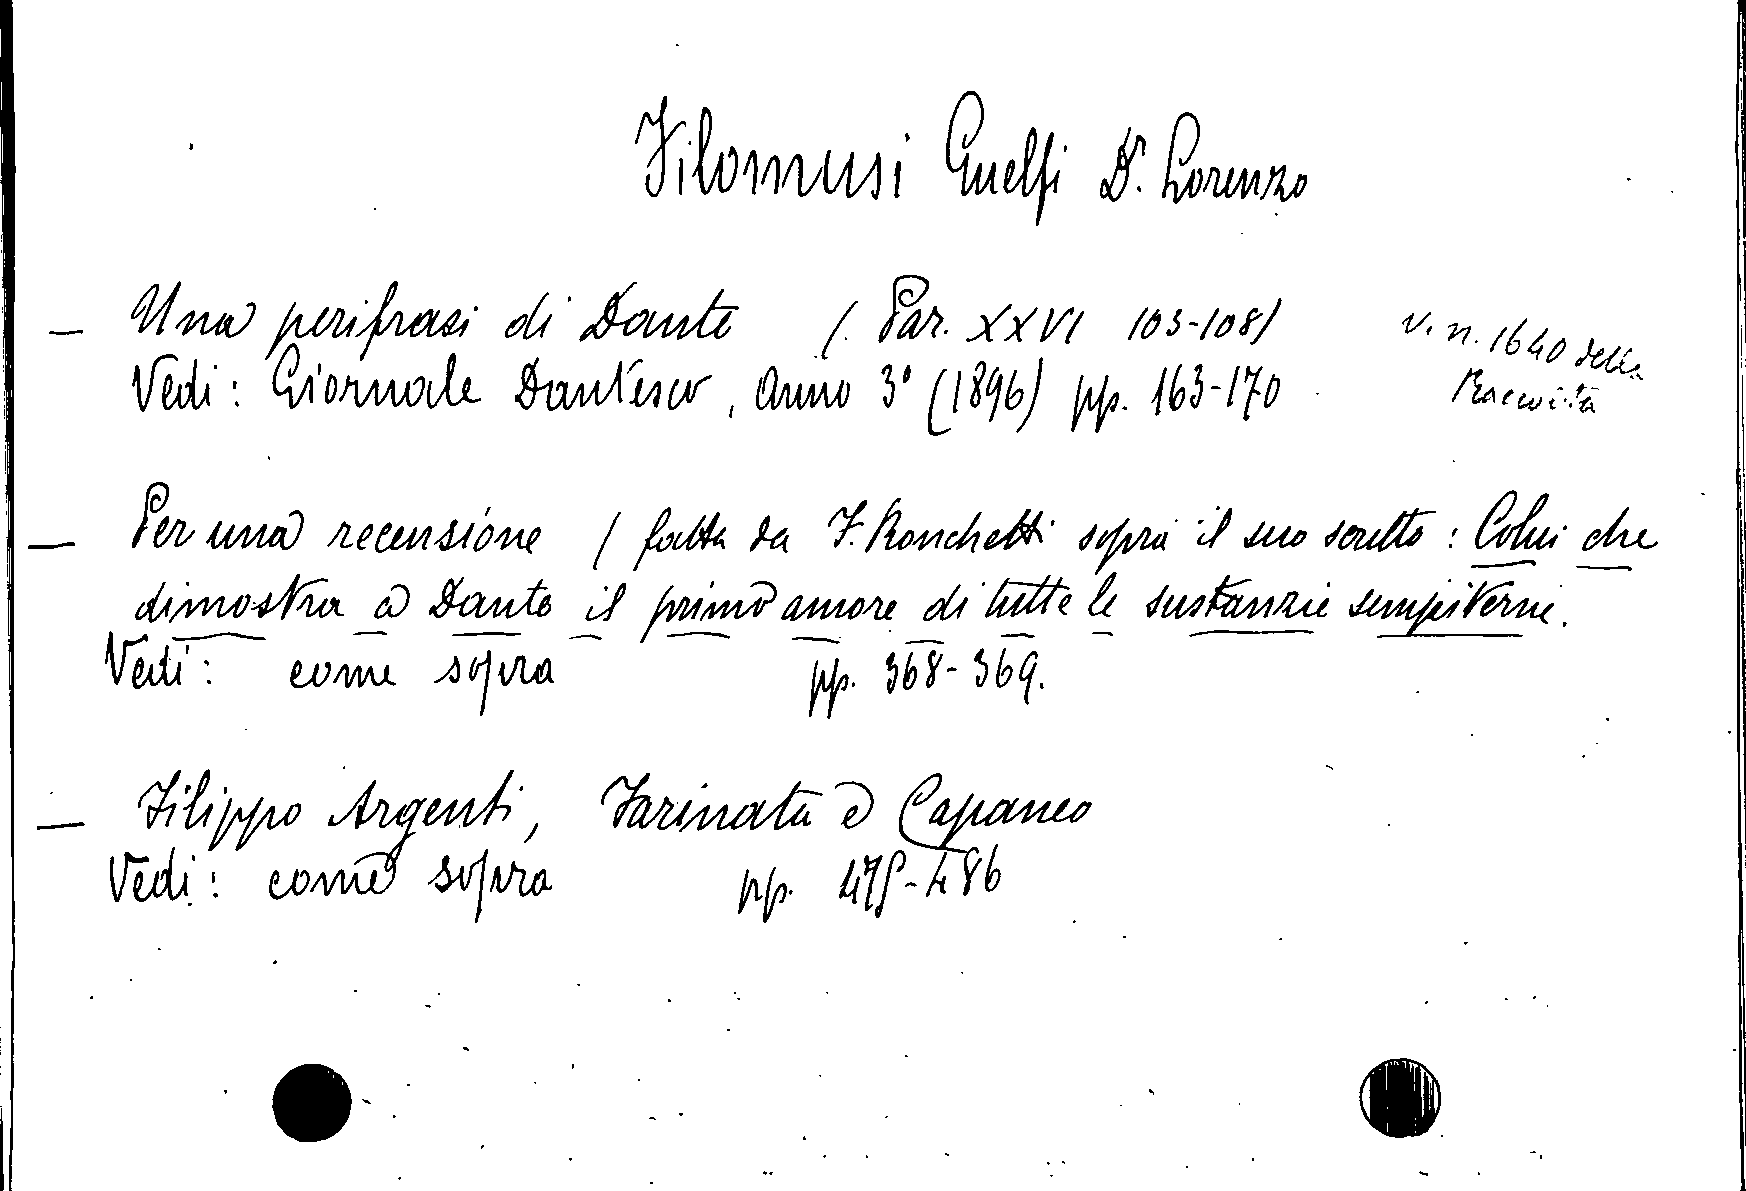 Filomusi Guelfi Dr. Lorenzo
— Una perifrasi di Dante (. Par. XXVI 103-108)
Vedi: Giornale Dantesco, anno 3º (1896) pp. 163-170
v. n. 1640 della
Raccolta
— Per una recensione / fatta da F. Ronchetti sopra il suo scritto: Colui che
dimostra a Dante il primo amore di tutte le sustanzie sempiterne.
Vedi: come sopra pp. 368-369.
— Filippo Argenti, Farinata e Capaneo
Vedi: come sopra pp. 475-486